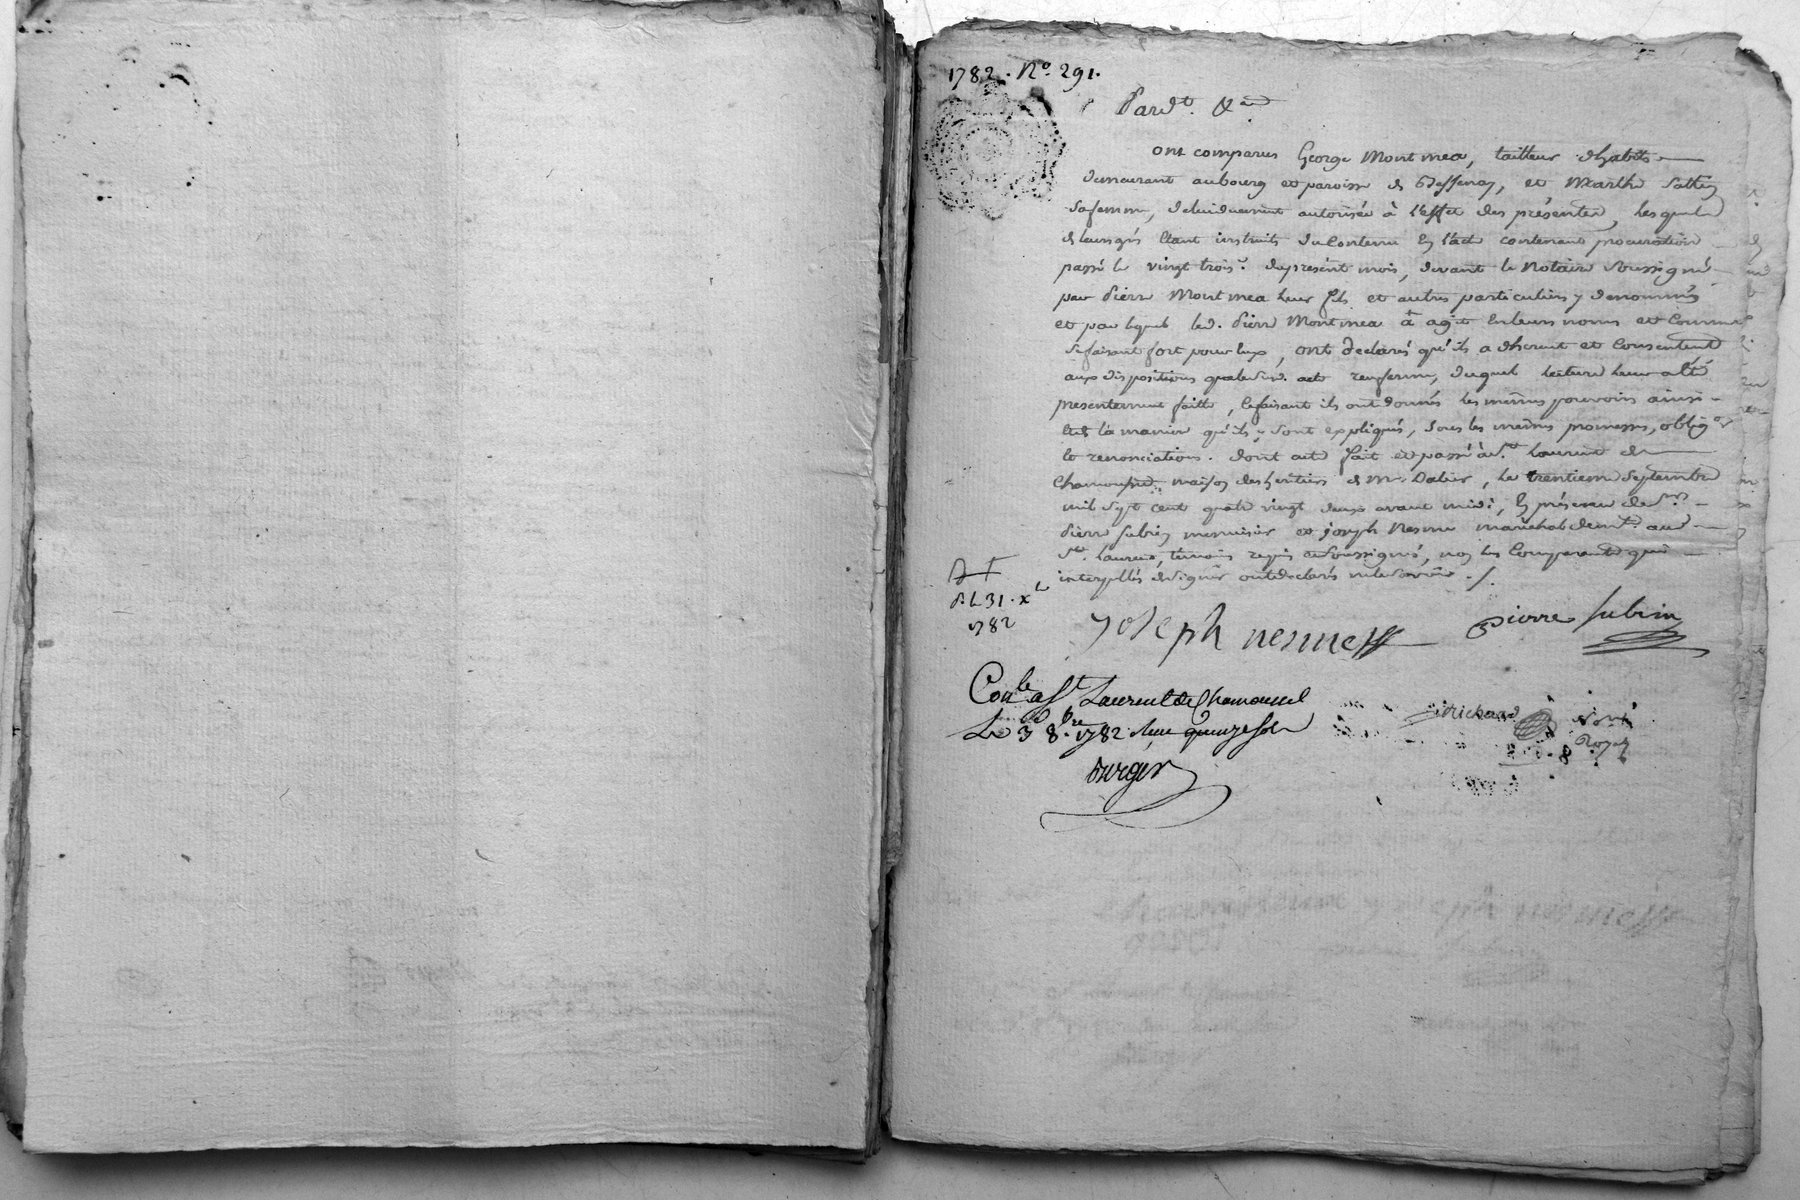 1782. No. 291.
Pardt. &a.
ont comparus George Montmea, tailleur d'habits
demeurant au bourg et paroisse de Bessenay, et Marthe
sa femme, deluiduement autorisée à l'effet des présentes, lesquels
de leurs grés étant instruits du contenu en l'acte contenant procuration
passé le vingt trois.e du présent mois, devant le Notaire soussigné
par Pierre Montmea leur fils et autres particuliers y denommés
et par lequel led. Pierre Montmea a agit en leurs noms et comme
se faisant fort pour eux, ont declarés qu'ils adherent et consentent
aux dispositions que led. acte renferme, duquel lecture leur a été
presentement faitte, ce faisant ils ont donnés les mêmes pouvoirs ainsi
et de la maniere qu'ils y sont expliqués, sous les mêmes promesses, obligons
et renonciations. dont acte fait et passé à St. Laurent de
Chamousset maison des héritiers de Mr. Dalier, le trentieme septembre
mil sept cent quatre vingt deux avant midi, en présence de srs.
Pierre Subrin menuisier et joseph Nesme marechal demt. aud.
St. Laurent, temoins requis et soussignés, non les comparants qui
interpellés de signer ont declarés ne le savoir ./.
D. L 31. xe
1782
joseph nesme
Pierre Subrin
Conle a St. Laurent de Chamousset
Le 3 8.bre 1782 Reçu quinze sols
Richard Nore
Royal